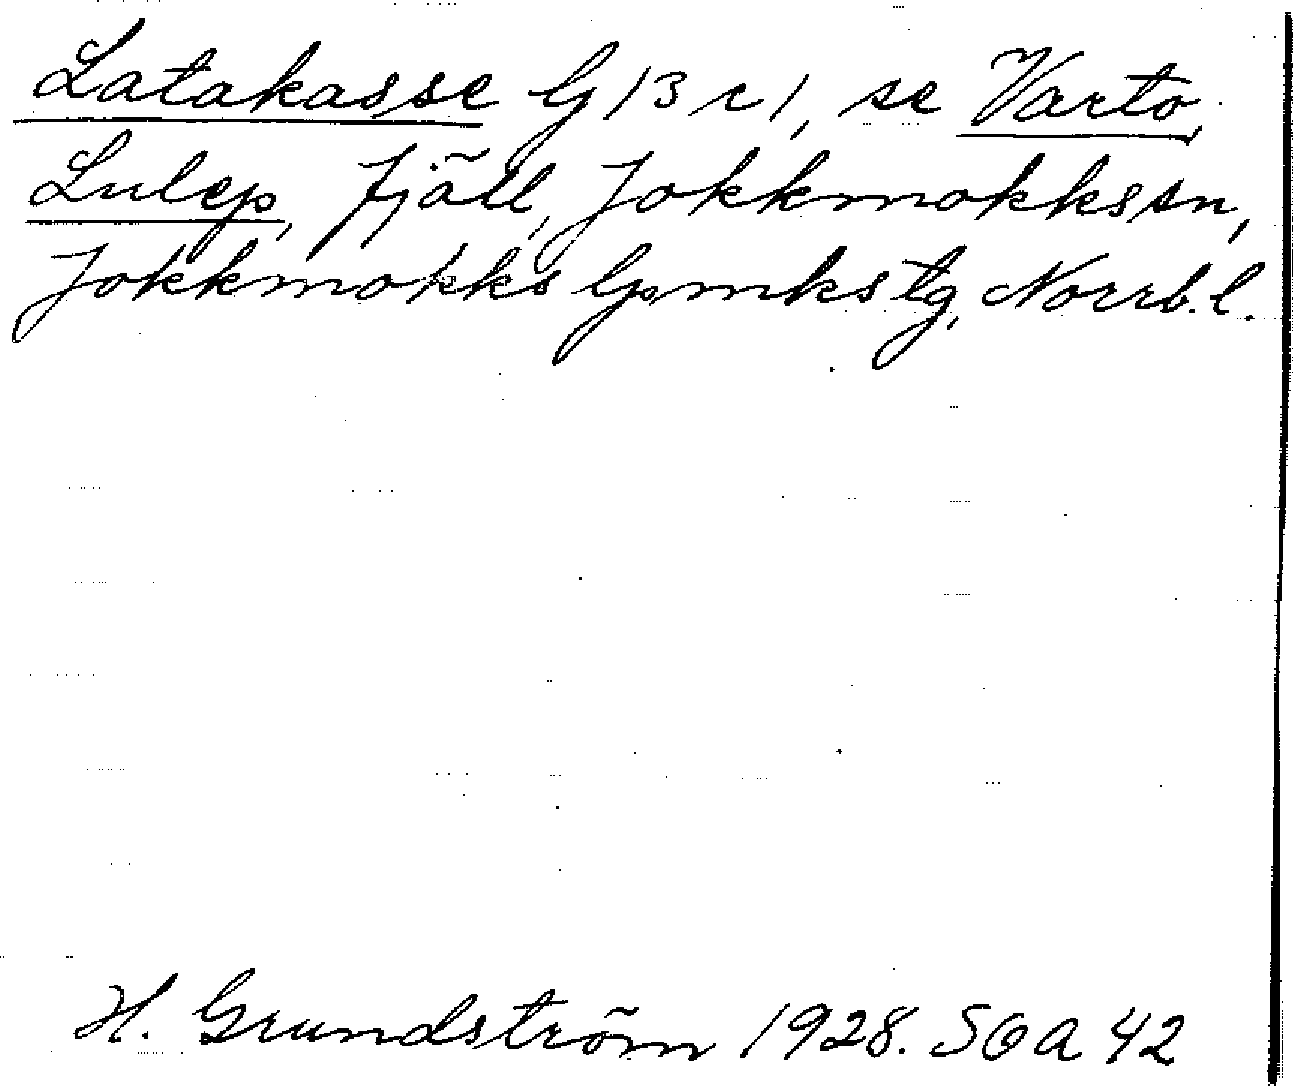 Latakasse lj 13 c 1, se Varto,
Lulep, fjäll, Jokkmokks sn,
Jokkmokks lpmks tg, Norrb. l.
H. Grundström 1928. SOA 42